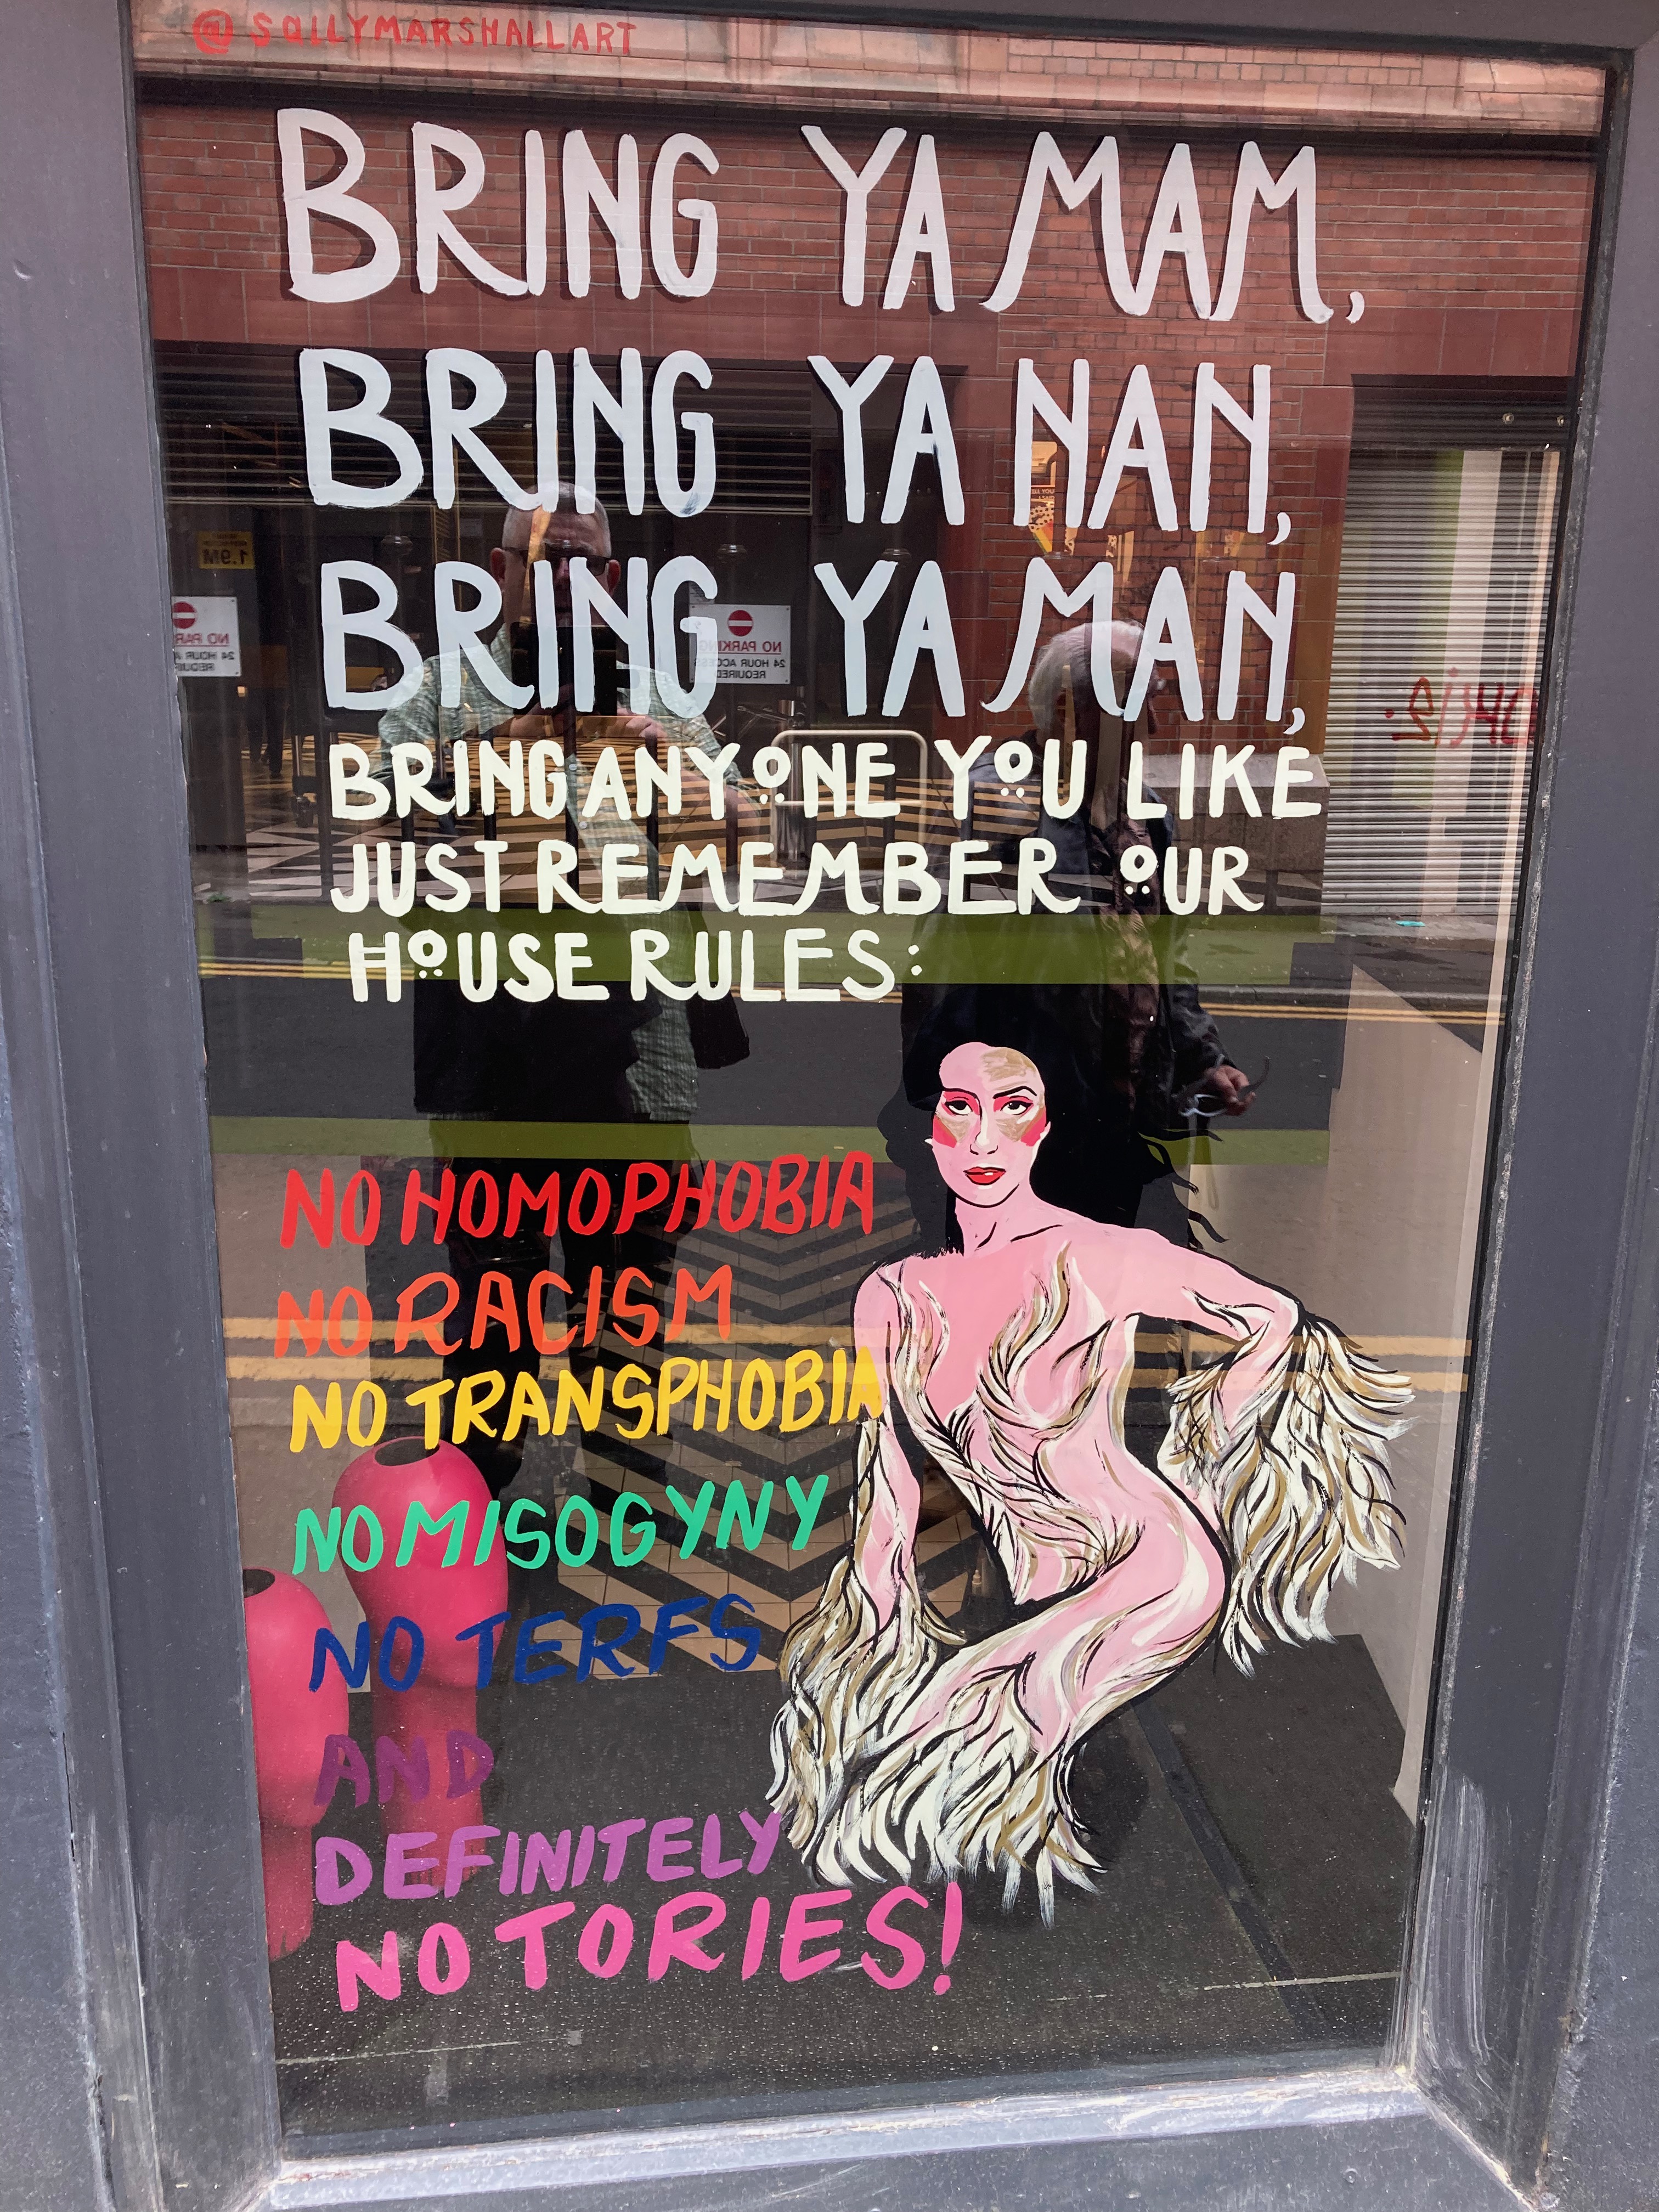 @SALLYMARSHALLART
BRING YA MAM,
BRING YA NAN,
BRING YA MAN,
BRING ANYONE YOU LIKE
JUST REMEMBER OUR
HOUSE RULES:
NO HOMOPHOBIA
NO RACISM
NO TRANSPHOBIA
NO MISOGYNY
NO TERFS
AND
DEFINITELY
NO TORIES!
1.9M
NO PARKING
24 HOUR ACCESS
REQUIRED